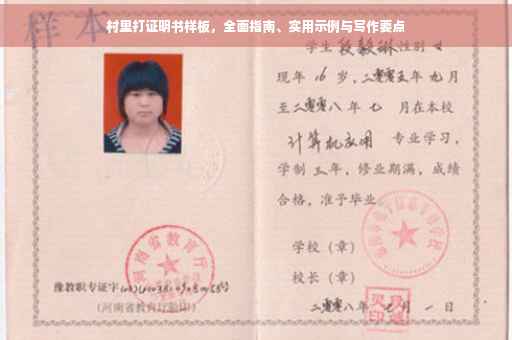 村里打证明书样板，全面指南、实用示例与写作要点
样本
学生段毅琳性别女
现年16岁，二零零五年九月
至二零零八年七月在本校
计算机应用专业学习，
学制三年，修业期满，成绩
合格，准予毕业。
学校（章）
校长（章）
二零零八年七月一日
河南省教育厅
豫教职专证字
（河南省教育厅验印）